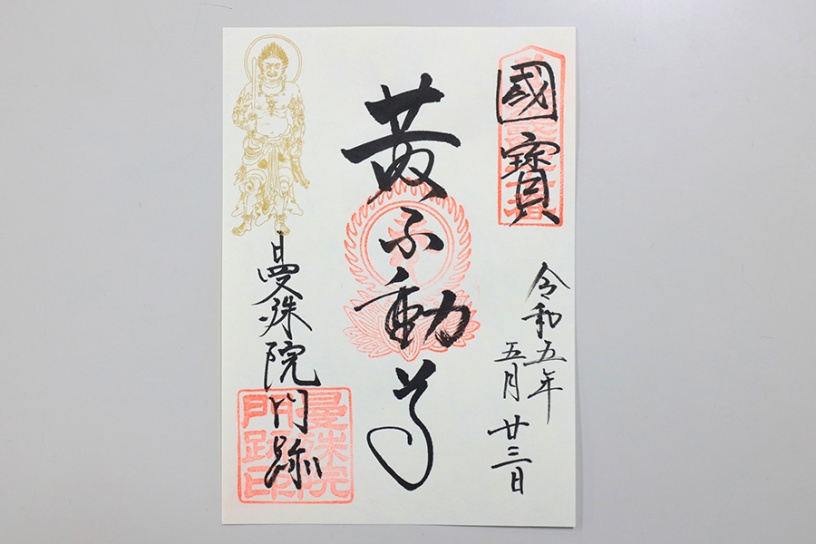 國寶
令和五年
五月廿三日
黄不動尊
曼殊院門跡
曼殊院
門跡印